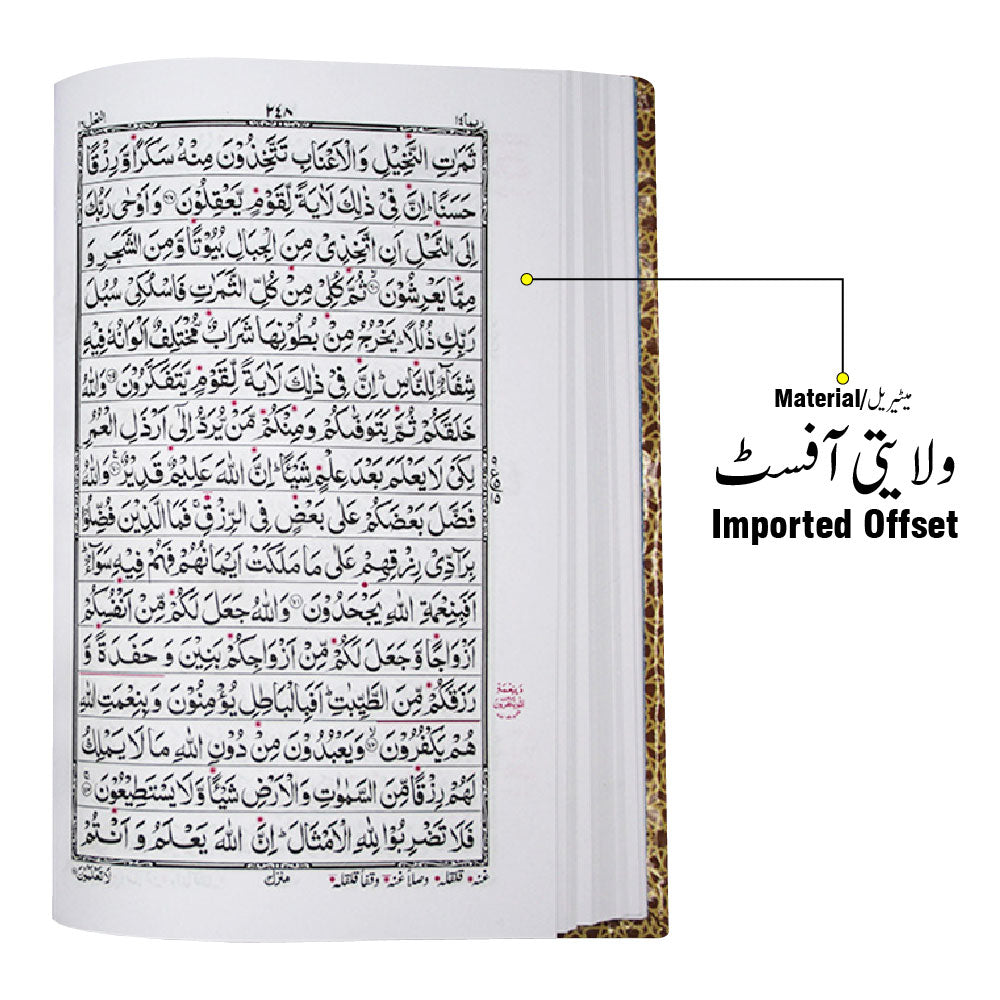 ربما ١٤
٢٤٨
النحل ١٦
ثَمَرٰتِ النَّخِيْلِ وَالْاَعْنَابِ تَتَّخِذُوْنَ مِنْهُ سَكَرًا وَّرِزْقًا
حَسَنًا ؕ اِنَّ فِىْ ذٰلِكَ لَاٰيَةً لِّقَوْمٍ يَّعْقِلُوْنَ ۝۶۷ وَاَوْحٰى رَبُّكَ
اِلَى النَّحْلِ اَنِ اتَّخِذِىْ مِنَ الْجِبَالِ بُيُوْتًا وَّمِنَ الشَّجَرِ وَ
مِمَّا يَعْرِشُوْنَ ۝۶۸ ثُمَّ كُلِىْ مِنْ كُلِّ الثَّمَرٰتِ فَاسْلُكِىْ سُبُلَ
رَبِّكِ ذُلُلًا ؕ يَخْرُجُ مِنْۢ بُطُوْنِهَا شَرَابٌ مُّخْتَلِفٌ اَلْوَانُهٗ فِيْهِ
شِفَآءٌ لِّلنَّاسِ ؕ اِنَّ فِىْ ذٰلِكَ لَاٰيَةً لِّقَوْمٍ يَّتَفَكَّرُوْنَ ۝۶۹ وَاللّٰهُ
خَلَقَكُمْ ثُمَّ يَتَوَفّٰىكُمْ وَمِنْكُمْ مَّنْ يُّرَدُّ اِلٰٓى اَرْذَلِ الْعُمُرِ
لِكَىْ لَا يَعْلَمَ بَعْدَ عِلْمٍ شَيْـًٔا ؕ اِنَّ اللّٰهَ عَلِيْمٌ قَدِيْرٌ ۝۷۰ وَاللّٰهُ
فَضَّلَ بَعْضَكُمْ عَلٰى بَعْضٍ فِى الرِّزْقِ ۚ فَمَا الَّذِيْنَ فُضِّلُوْا
بِرَآدِّىْ رِزْقِهِمْ عَلٰى مَا مَلَكَتْ اَيْمَانُهُمْ فَهُمْ فِيْهِ سَوَآءٌ ؕ
اَفَبِنِعْمَةِ اللّٰهِ يَجْحَدُوْنَ ۝۷۱ وَاللّٰهُ جَعَلَ لَكُمْ مِّنْ اَنْفُسِكُمْ
اَزْوَاجًا وَّجَعَلَ لَكُمْ مِّنْ اَزْوَاجِكُمْ بَنِيْنَ وَ حَفَدَةً وَّ
رَزَقَكُمْ مِّنَ الطَّيِّبٰتِ ؕ اَفَبِالْبَاطِلِ يُؤْمِنُوْنَ وَبِنِعْمَتِ اللّٰهِ
هُمْ يَكْفُرُوْنَ ۝۷۲ وَيَعْبُدُوْنَ مِنْ دُوْنِ اللّٰهِ مَا لَا يَمْلِكُ
لَهُمْ رِزْقًا مِّنَ السَّمٰوٰتِ وَالْاَرْضِ شَيْـًٔا وَّلَا يَسْتَطِيْعُوْنَ ۝۷۳
فَلَا تَضْرِبُوْا لِلّٰهِ الْاَمْثَالَ ؕ اِنَّ اللّٰهَ يَعْلَمُ وَ اَنْتُمْ
غنہ قلقلہ وصلاً غنہ وقفاً قلقلہ
منزل
لَا تَعْلَمُوْنَ
Material/میٹیریل
ولایتی آفسٹ
Imported Offset